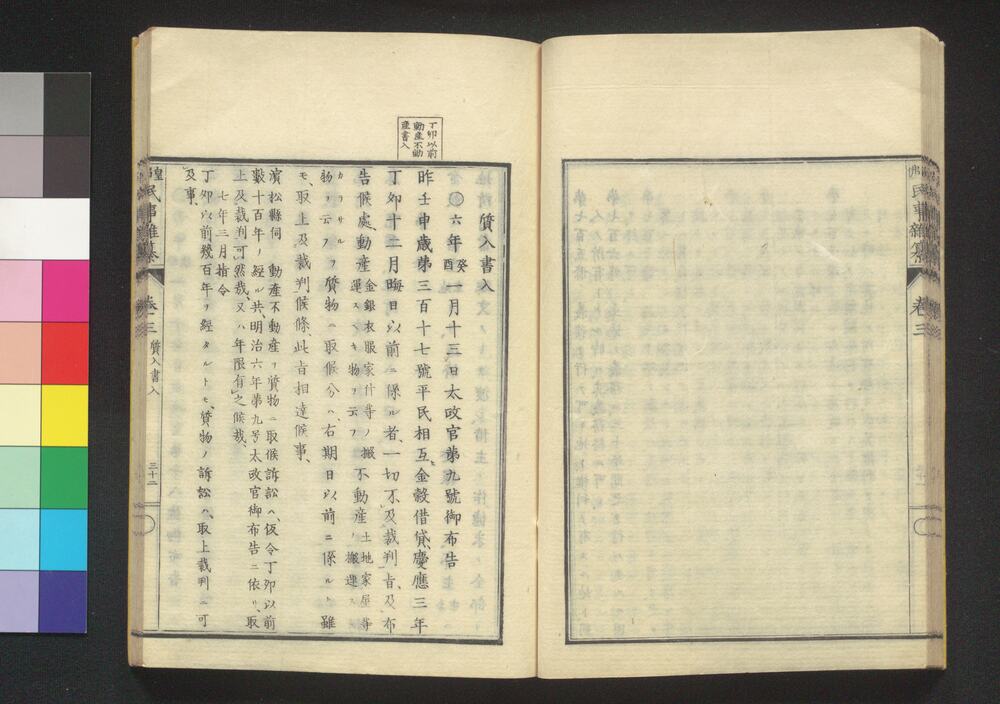 民事雑纂
巻三
丁卯以前
動産不動
産書入
質入書入
◎六年癸酉一月十三日太政官第九號御布告
昨壬申歳第三百十七號平民相互金穀借貸慶應三年
丁卯十二月晦日以前ニ係ル者、一切不及裁判旨、及布
告候處、動産金銀衣服家什等ノ搬運スヘキ物ヲ云フ不動産土地家屋等ノ搬運ス
カラサル物ヲ云フヲ質物ニ取候分ハ、右期日以前ニ係ルト雖
モ、取上及裁判候條、此旨相達候事、
濱松縣伺 動産不動産ヲ質物ニ取候訴訟ハ、仮令丁卯以前
數十百年ノ經ル共、明治六年第九号太政官御布告ニ依リ、取
上及裁判可然哉、又ハ年限有之候哉、
七年三月指令
丁卯以前幾百年ヲ經タルトモ、質物ノ訴訟ハ、取上裁判ニ可
及事、
民事雑纂
巻三
質入書入
三十二